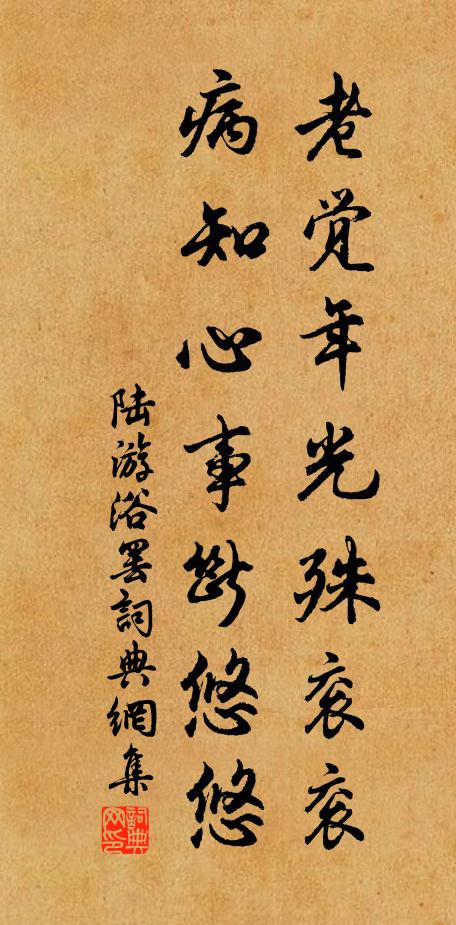 老觉年光殊衮衮
病知心事断悠悠
陆游浴罢詞典網集
詞典网印